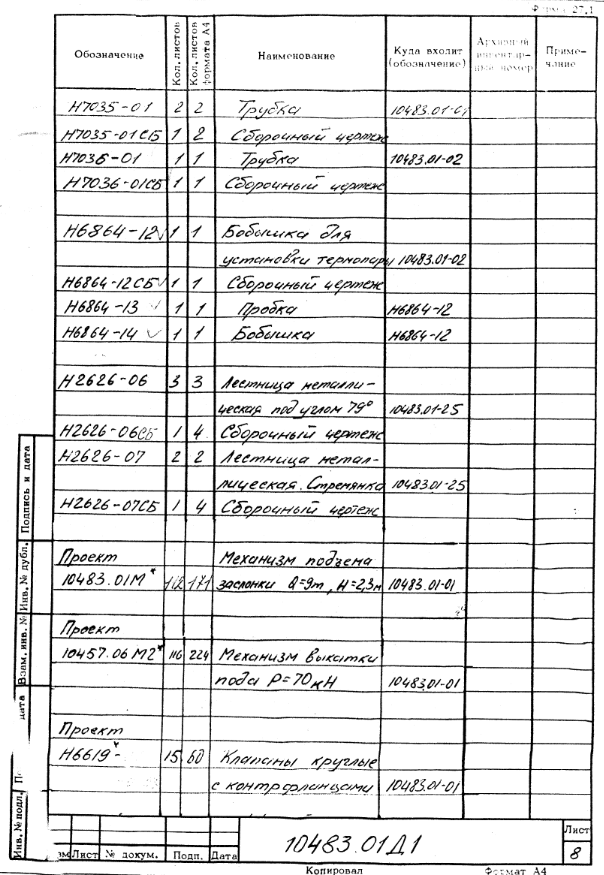 Форма 27.1
Обозначение Кол. листов Кол. листов формата А4 Наименование Куда входит (обозначение) Архивный инвентарный номер Примечание
Н7035-01 2 2 Трубка 10483.01-01
Н7035-01СБ 1 2 Сборочный чертеж
Н7036-01 1 1 Трубка 10483.01-02
Н7036-01СБ 1 1 Сборочный чертеж
Н6864-12 1 1 Бобышка для
установки термопары 10483.01-02
Н6864-12СБ 1 1 Сборочный чертеж
Н6864-13 1 1 Пробка Н6864-12
Н6864-14 1 1 Бобышка Н6864-12
Н2626-06 3 3 Лестница металли-
ческая под углом 79° 10483.01-25
Н2626-06СБ 1 4 Сборочный чертеж
Н2626-07 2 2 Лестница метал-
лическая. Стремянка 10483.01-25
Н2626-07СБ 1 4 Сборочный чертеж
Проект Механизм подъема
10483.01М* 112 171 заслонки Q=9т, H=2,3м 10483.01-01
Проект
10457.06М2* 116 224 Механизм выкатки
пода P=70кН 10483.01-01
Проект
Н6619-* 15 60 Клапаны круглые
с контрфланцами 10483.01-01
Подпись и дата
Инв. № дубл.
Взам. инв. №
дата
Инв. № подл.
Лист № докум. Подп. Дата
10483.01Д1
Лист
8
Копировал Формат А4